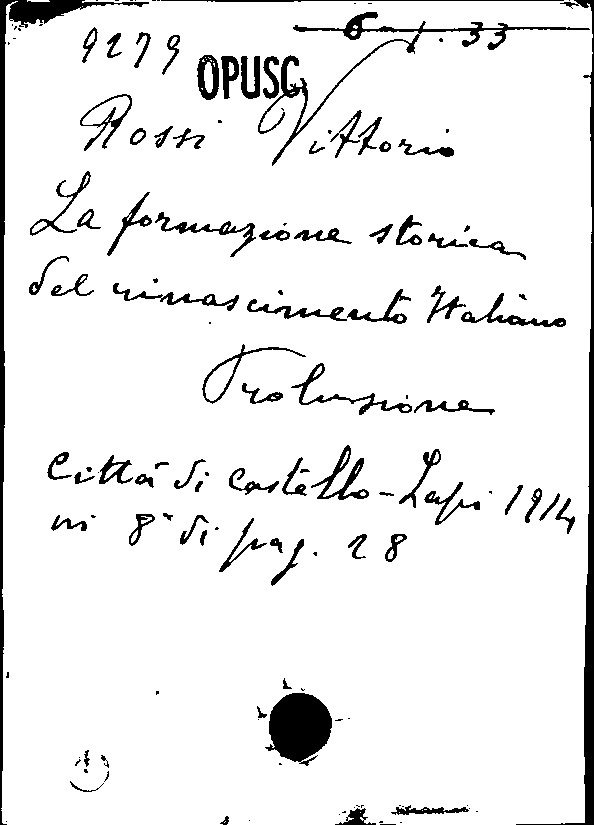 9279 OPUSC. 6-1.33
Rossi Vittorio
La formazione storica
del rinascimento Italiano
Prolusione
Città di Castello - Lapi 1914
in 8° di pag. 28